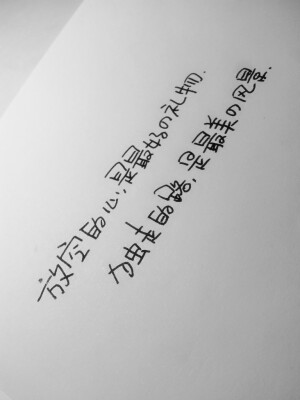 放空的心,是最好の礼物.
独走的路,是最美の风景.